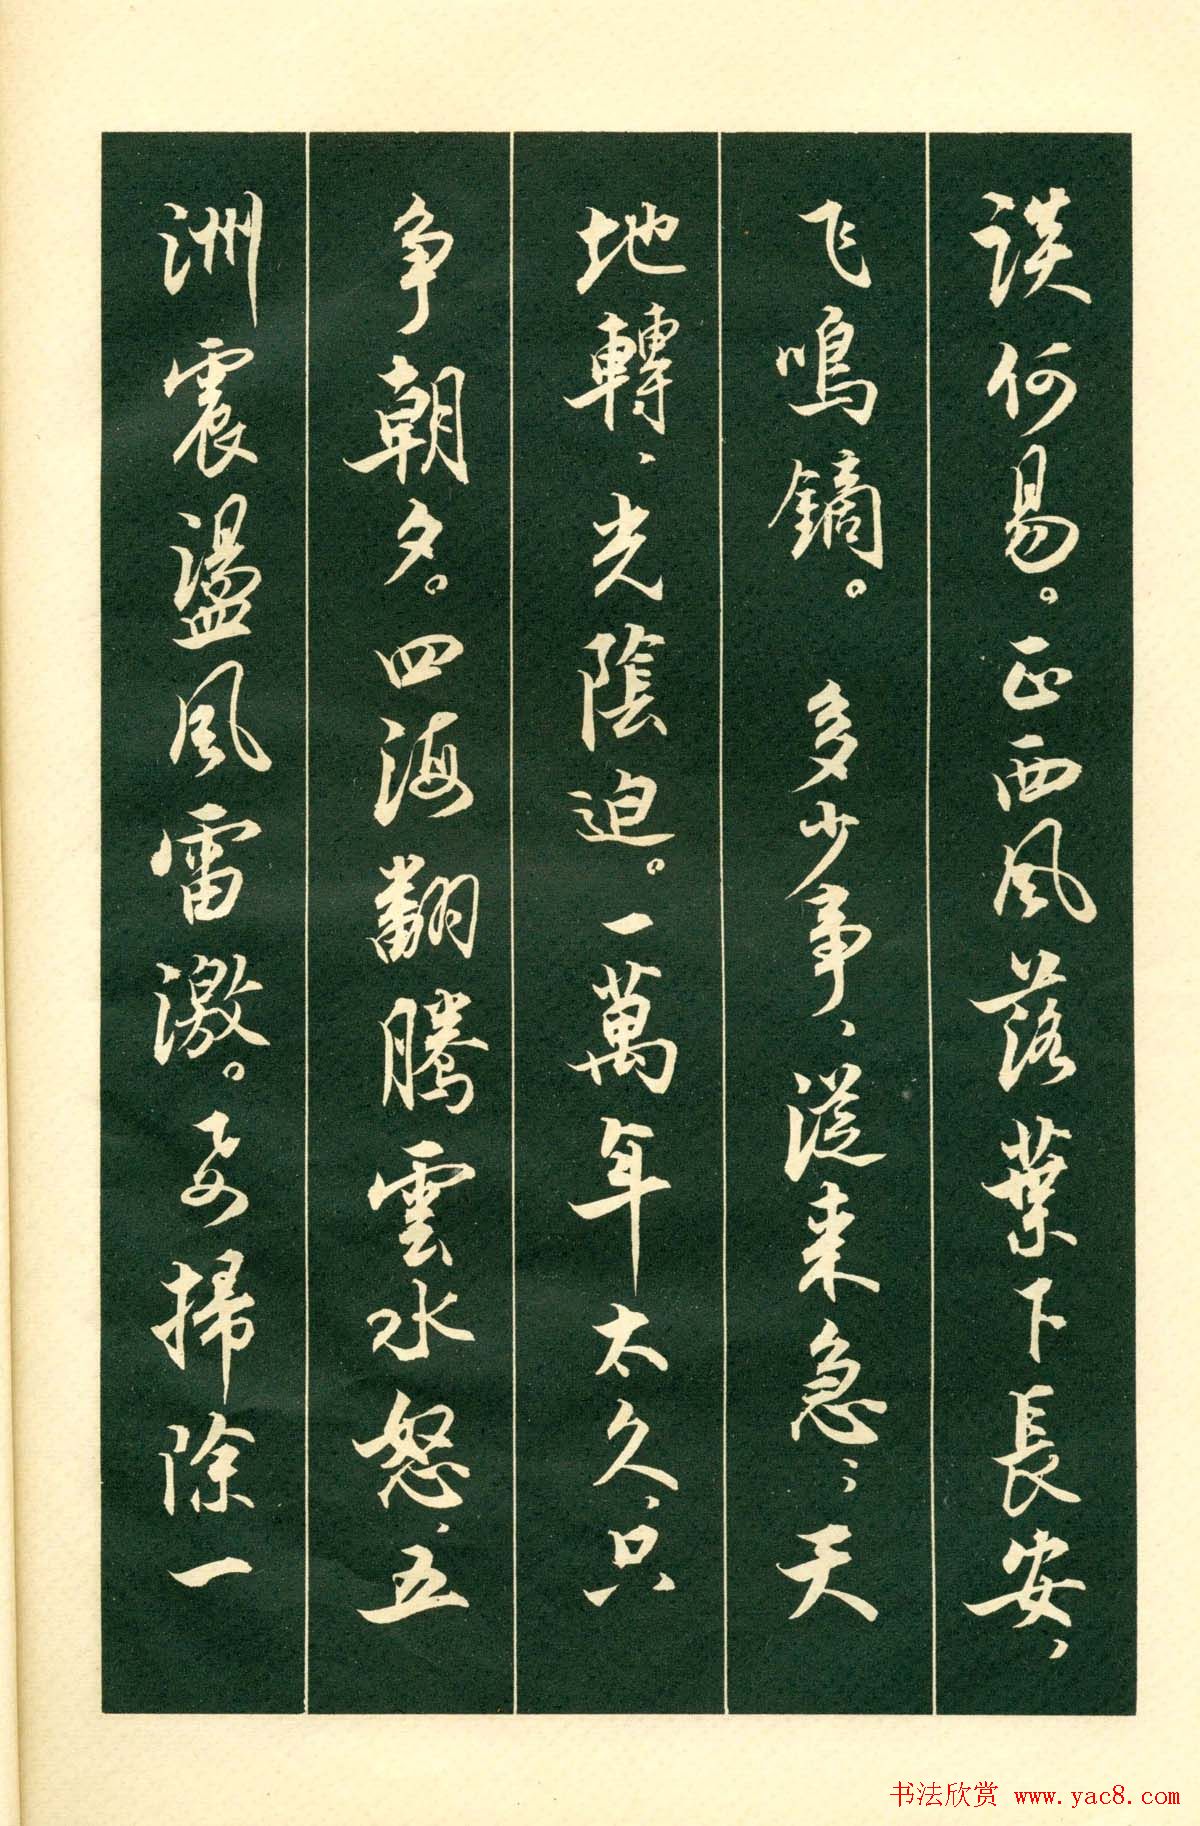 談何易。正西風落葉下長安、
飞鳴鏑。多少事、從来急；天
地轉、光陰迫。一萬年太久、只
争朝夕。四海翻騰雲水怒、五
洲震盪風雷激。要掃除一
书法欣赏 www.yac8.com